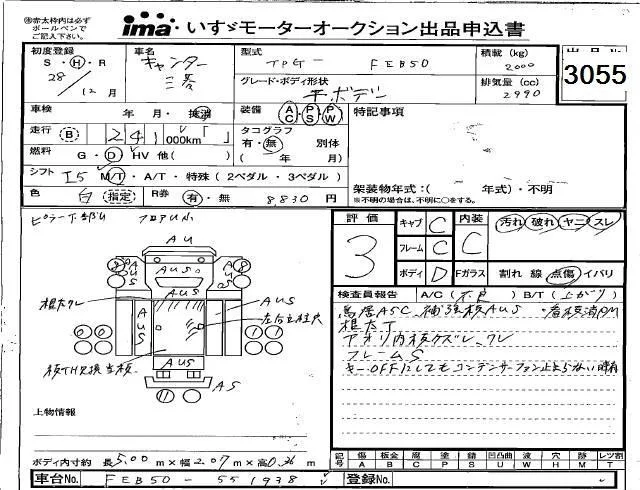 ㊟赤太枠内は必ず
ボールペンで
ご記入下さい。
ima いすゞモーターオークション出品申込書
初度登録 S・H・R 28 / 12 月
車名 キャンター 三菱
型式 TPG- FEB50
積載 (kg) 2000
出品No. 3055
グレード・ボディ形状 平ボデー
排気量 (cc) 2990
車検 年・月・抹消
装備 AC・PS・PW
特記事項
走行 B 241,000km「 」
タコグラフ 有・無 別体
( 年 月)
燃料 G・D・HV 他( )
シフト I5 M/T・A/T・特殊 (2ペダル・3ペダル)
架装物年式:( 年式)・不明
※不明の場合は、不明に○をする。
色 白 指定 R券 有・無 8,830 円
評価 3
キャブ C
フレーム C
ボディ D
内装 C 汚れ 破れ ヤニ スレ
Fガラス 割れ 線 点傷 イバリ
AU
AUS
AUS
AUS
AUS
AUS
AS
検査員報告 A/C(不良) B/T(上がり)
鳥居ASC、補強板AUS
フレームS
キーOFFにしてもコンデンサーファン止まらない時有
上物情報
ボディ内寸約 長5.00m×幅2.07m×高0.36m
記号 傷A 板金B 腐C 塗P 錆S 凹凸曲U 波W 穴H 跡M レツ割T
車台No. FEB50-551938
登録No.